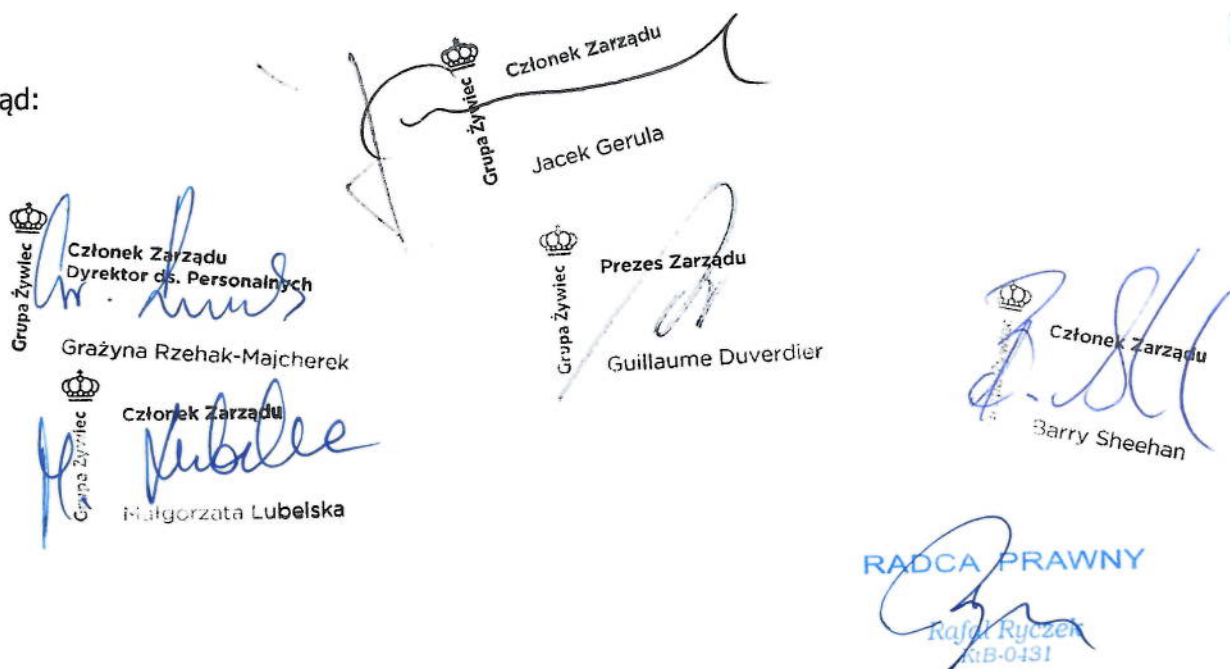 ąd:
Grupa Żywiec
Członek Zarządu
Jacek Gerula
Grupa Żywiec
Członek Zarządu
Dyrektor ds. Personalnych
Grażyna Rzehak-Majcherek
Grupa Żywiec
Prezes Zarządu
Guillaume Duverdier
Członek Zarządu
Barry Sheehan
Grupa Żywiec
Członek Zarządu
Małgorzata Lubelska
RADCA PRAWNY
Rafał Ryczek
KtB-0431